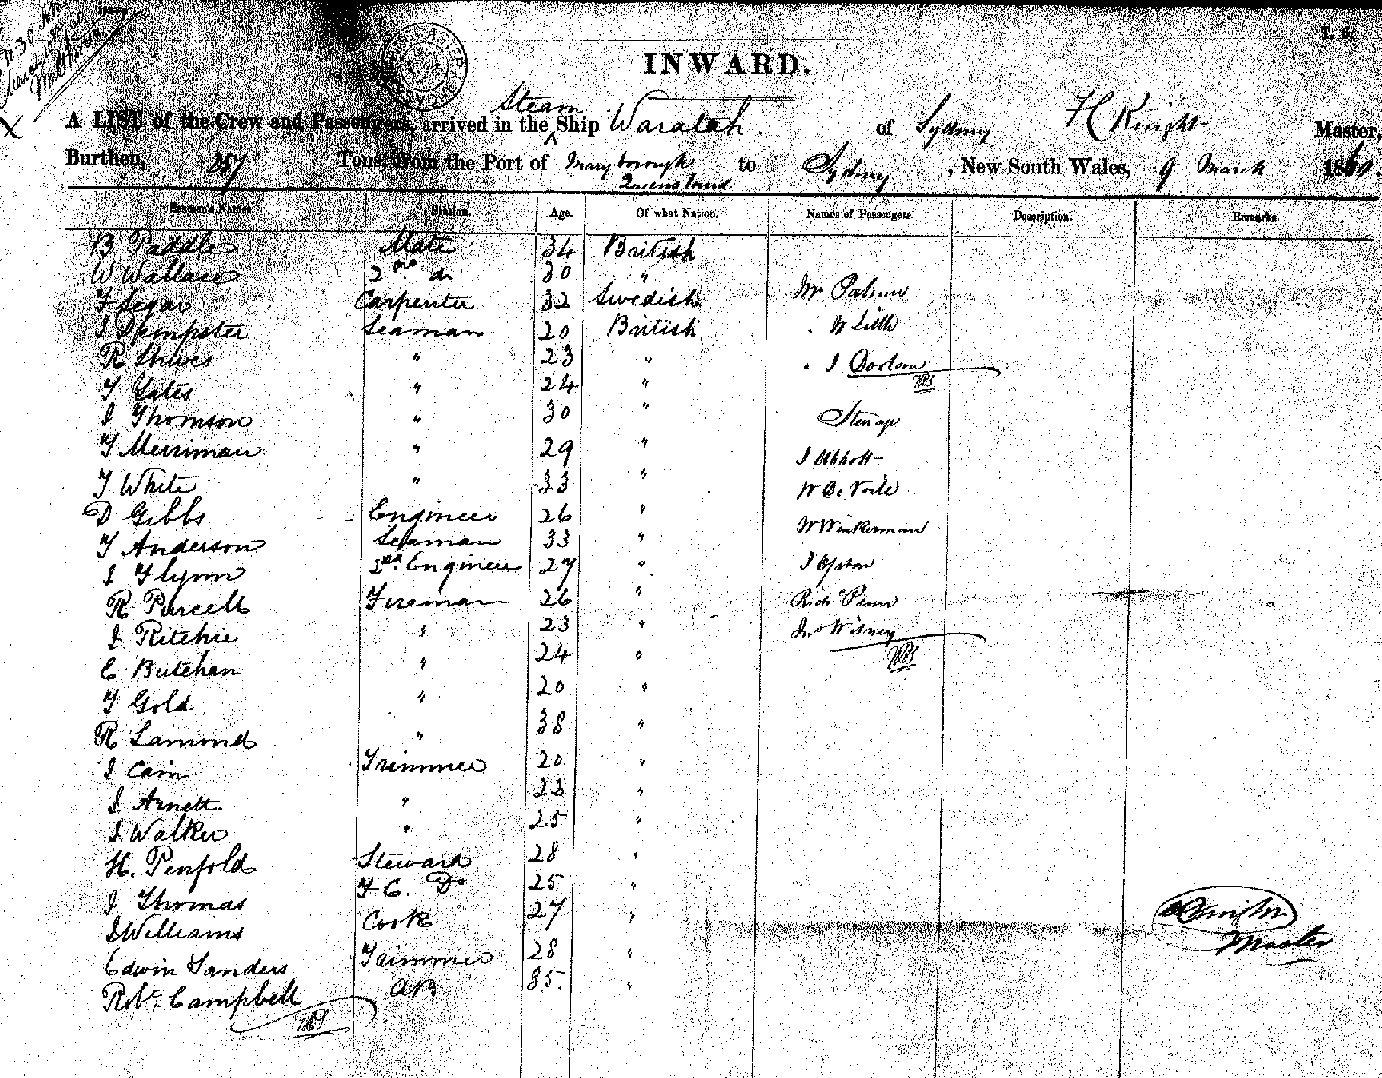 INWARD.
Steam
A LIST of the Crew and Passengers, arrived in the Ship Waratah of Sydney H Knight Master,
Burthen, Tons, from the Port of Maryborough to Sydney, New South Wales, 9 March
Queensland
Station. Age. Of what Nation. Names of Passengers. Description. Remarks
B Paddle Mate 34 British
W Wallace 2nd do 30 "
F Segar Carpenter 32 Swedish Mr Palmer
J Dempster Seaman 20 British " W
R " 23 " " J
T Yates " 24 "
J Thomson " 30 " Steerage
T Merriman " 29 " J Abbott
T White " 33 " W
D Gibbs Engineer 26 " W Winkerman
T Anderson Seaman 33 "
J Flynn 2nd Engineer 27 " J
R Purcell Fireman 26 "
J Ritchie " 23 " Jno Witney
E Butchan " 24 "
T Gold " 20 "
R Lamond " 38 "
J Cain Trimmer 20 "
J Arnett " 22 "
J Walker " 25 "
H. Penfold Steward 28 "
J Thomas F C. Do 25 "
J Williams Cook 27 "
Edwin Sanders Trimmer 28 "
Robt. Campbell AB 35 "
Master